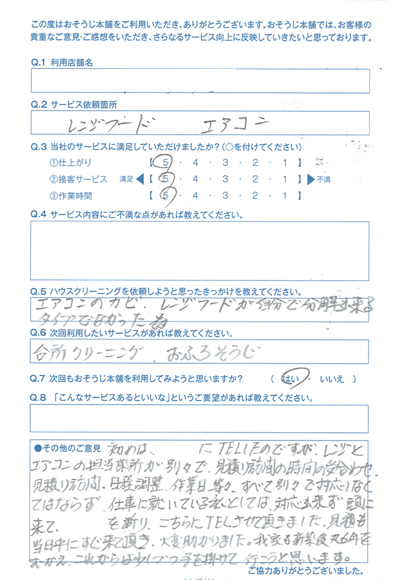 この度はおそうじ本舗をご利用いただき、ありがとうございます。おそうじ本舗では、お客様の
貴重なご意見・ご感想をいただき、さらなるサービス向上に反映していきたいと思っております。
Q.1 利用店舗名
Q.2 サービス依頼箇所
レンジフード エアコン
Q.3 当社のサービスに満足していただけましたか?(○を付けてください)
①仕上がり 【 5 ・ 4 ・ 3 ・ 2 ・ 1 】
②接客サービス 満足 ◀【 5 ・ 4 ・ 3 ・ 2 ・ 1 】▶ 不満
③作業時間 【 5 ・ 4 ・ 3 ・ 2 ・ 1 】
Q.4 サービス内容にご不満な点があれば教えてください。
Q.5 ハウスクリーニングを依頼しようと思ったきっかけを教えてください。
エアコンのカビ、レンジフードが自分で分解出来る
タイプでなかった為
Q.6 次回利用したいサービスがあれば教えてください。
台所クリーニング、おふろそうじ
Q.7 次回もおそうじ本舗を利用してみようと思いますか? ( はい ・ いいえ )
Q.8 「こんなサービスあるといいな」というご要望があれば教えてください。
●その他のご意見 初めは、 にTELしたのですが、レンジと
エアコンの担当場所が別々で、見積り訪問の時間の受合わせ、
見積り訪問、日程調整、作業日等々、すべて別々で対応しなく
てはならず、仕事に就いている私としては、対応出来ず頭に
来て、 を断り、こちらにTELさせて頂きました。見積も
当日中にすぐ来て頂き、大変助かりました。我家も新築後丸6年を
むかえ、これからは少しづつ手を掛けて行こうと思います。
ご協力ありがとうございました。